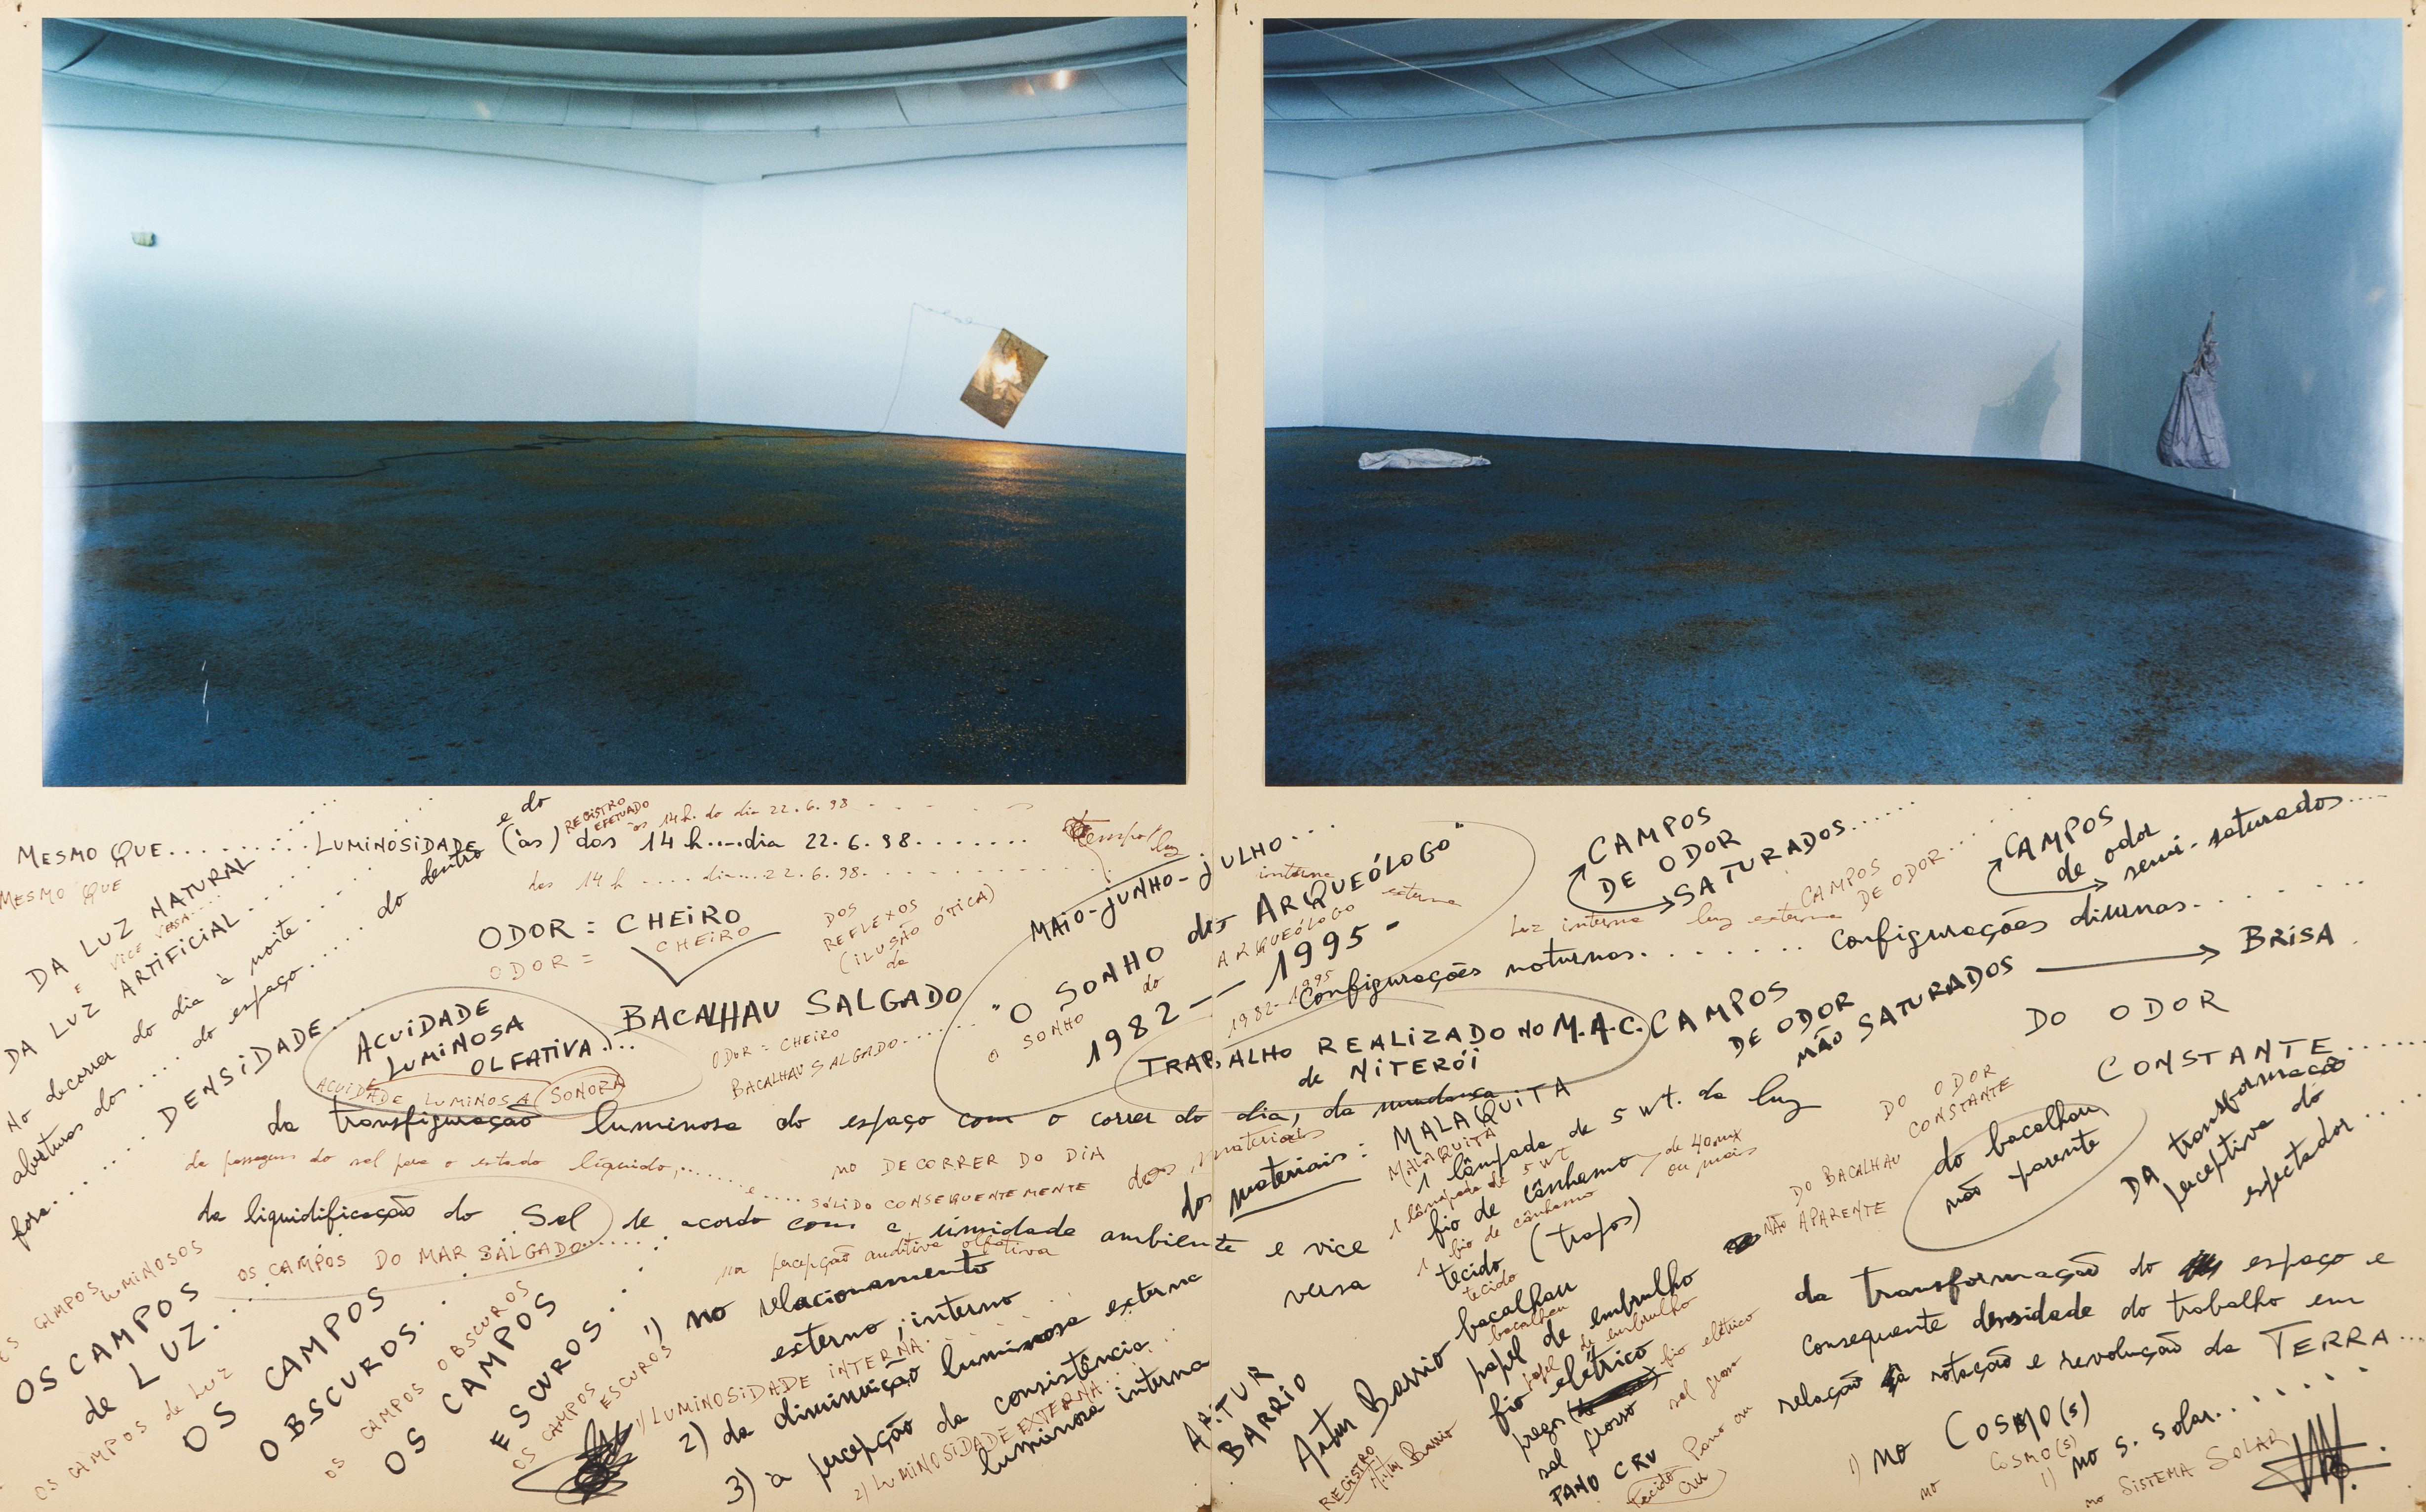 MESMO QUE.............. LUMINOSIDADE e do (às) das 14 h....dia 22.6.98........
REGISTRO EFETUADO às 14 h. do dia 22.6.98
MESMO QUE
das 14 h .... dia...22.6.98.
DA LUZ NATURAL
E VICE VERSA....
DA LUZ ARTIFICIAL.....
No decorrer do dia à noite....
aberturas dos.... do espaço..... do dentro
fora.......... DENSIDADE...
tempo/luz
ODOR = CHEIRO
CHEIRO
ODOR =
DOS
REFLEXOS
(ILUSÃO ÓTICA)
da
ACUIDADE
LUMINOSA
OLFATIVA....
ACUIDADE LUMINOSA SONORA
BACALHAU SALGADO
ODOR = CHEIRO
BACALHAU SALGADO........
MAIO-JUNHO-JULHO...
interna
externa
"O SONHO do ARQUEÓLOGO"
O SONHO do ARQUEÓLOGO
1982 -- 1995-
1982-1995
TRABALHO REALIZADO NO M.A.C.
de NITERÓI
CAMPOS
DE ODOR
SATURADOS.....
Luz interna luz externa
CAMPOS
DE ODOR...
CAMPOS
de odor
semi-saturados.....
Configurações noturnas....... Configurações diurnas.......
CAMPOS
DE ODOR
NÃO SATURADOS
BRISA
DO ODOR
CONSTANTE.......
DO ODOR
CONSTANTE
da transfiguração luminosa do espaço com o correr do dia, da mudança
da passagem do sal para o estado líquido,...... e.... SÓLIDO CONSEQUENTEMENTE
NO DECORRER DO DIA
dos materiais
da liquidificação do Sal de acordo com a umidade ambiente e vice
versa
OS CAMPOS DO MAR SALGADO......
na percepção auditiva olfativa
dos materiais:
MALAQUITA
MALAQUITA
1 lâmpada de 5 wt. de luz
1 lâmpada de 5 wt
fio de cânhamo de 40 mx
ou mais
1 fio de cânhamo
tecido (trapos)
tecido
bacalhau
bacalhau
papel de embrulho
papel de embrulho
fio elétrico
fio elétrico
pregos
sal grosso
sal grosso
PANO CRU
tecido Pano ou
cru
do bacalhau
não aparente
DO BACALHAU
NÃO APARENTE
DA transformação
perceptiva do
espectador....
OS CAMPOS LUMINOSOS
OS CAMPOS
de LUZ....
OS CAMPOS de LUZ
OS CAMPOS
OBSCUROS...
OS CAMPOS OBSCUROS
OS CAMPOS
ESCUROS...
OS CAMPOS ESCUROS
1) no relacionamento
externo; interno
1) LUMINOSIDADE INTERNA.
2) da diminuição luminosa externa
3) à percepção da consistência
luminosa interna
2) LUMINOSIDADE EXTERNA...
ARTUR
BARRIO
Artur Barrio
REGISTRO
Artur Barrio
da transformação do espaço e
consequente densidade do trabalho em
relação à rotação e revolução da TERRA...
1) no COSMO(s)
no COSMO(S)
1) no s. solar......
no SISTEMA SOLAR